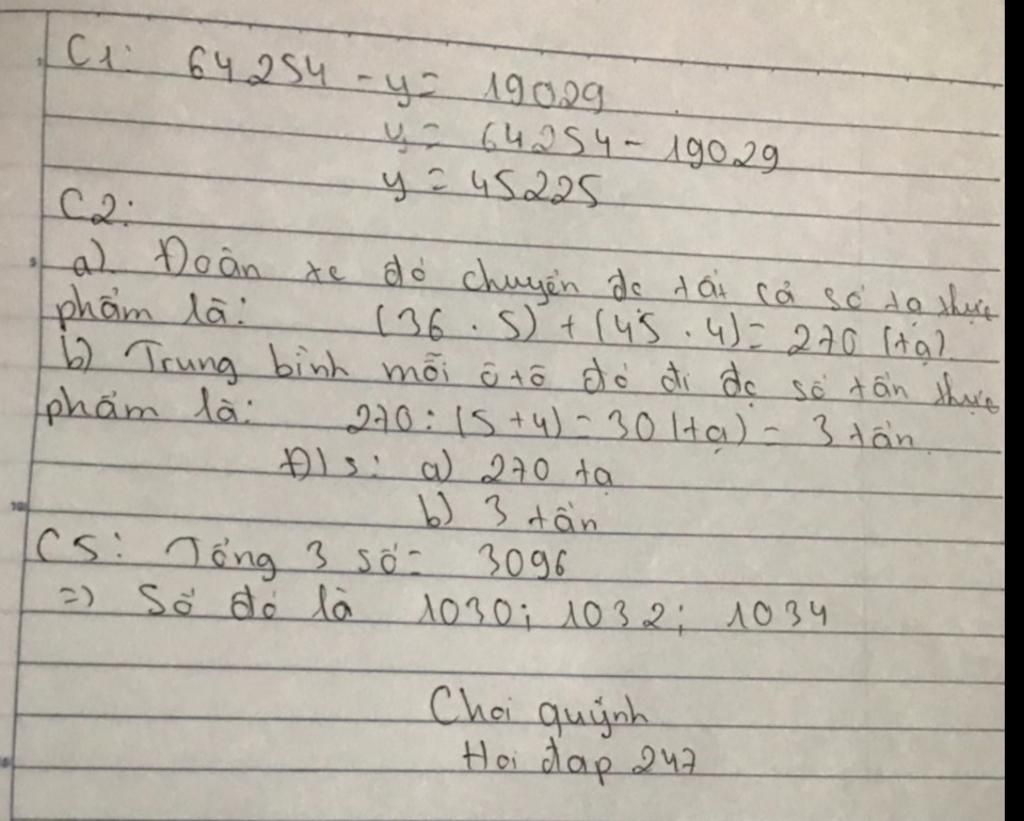 C1: 64254 - y = 19029
y = 64254 - 19029
y = 45225
C2:
a). Đoàn xe đó chuyển đc tất cả số tạ thực
phẩm là: (36 . 5) + (45 . 4) = 270 (tạ).
b) Trung bình mỗi ô tô đó đi đc số tấn thực
phẩm là: 270 : (5 + 4) = 30 (tạ) = 3 tấn.
Đ/s: a) 270 tạ
b) 3 tấn
C5: Tổng 3 số = 3096
=> Số đó là 1030; 1032; 1034
Choi quỳnh
Hoi đap 247